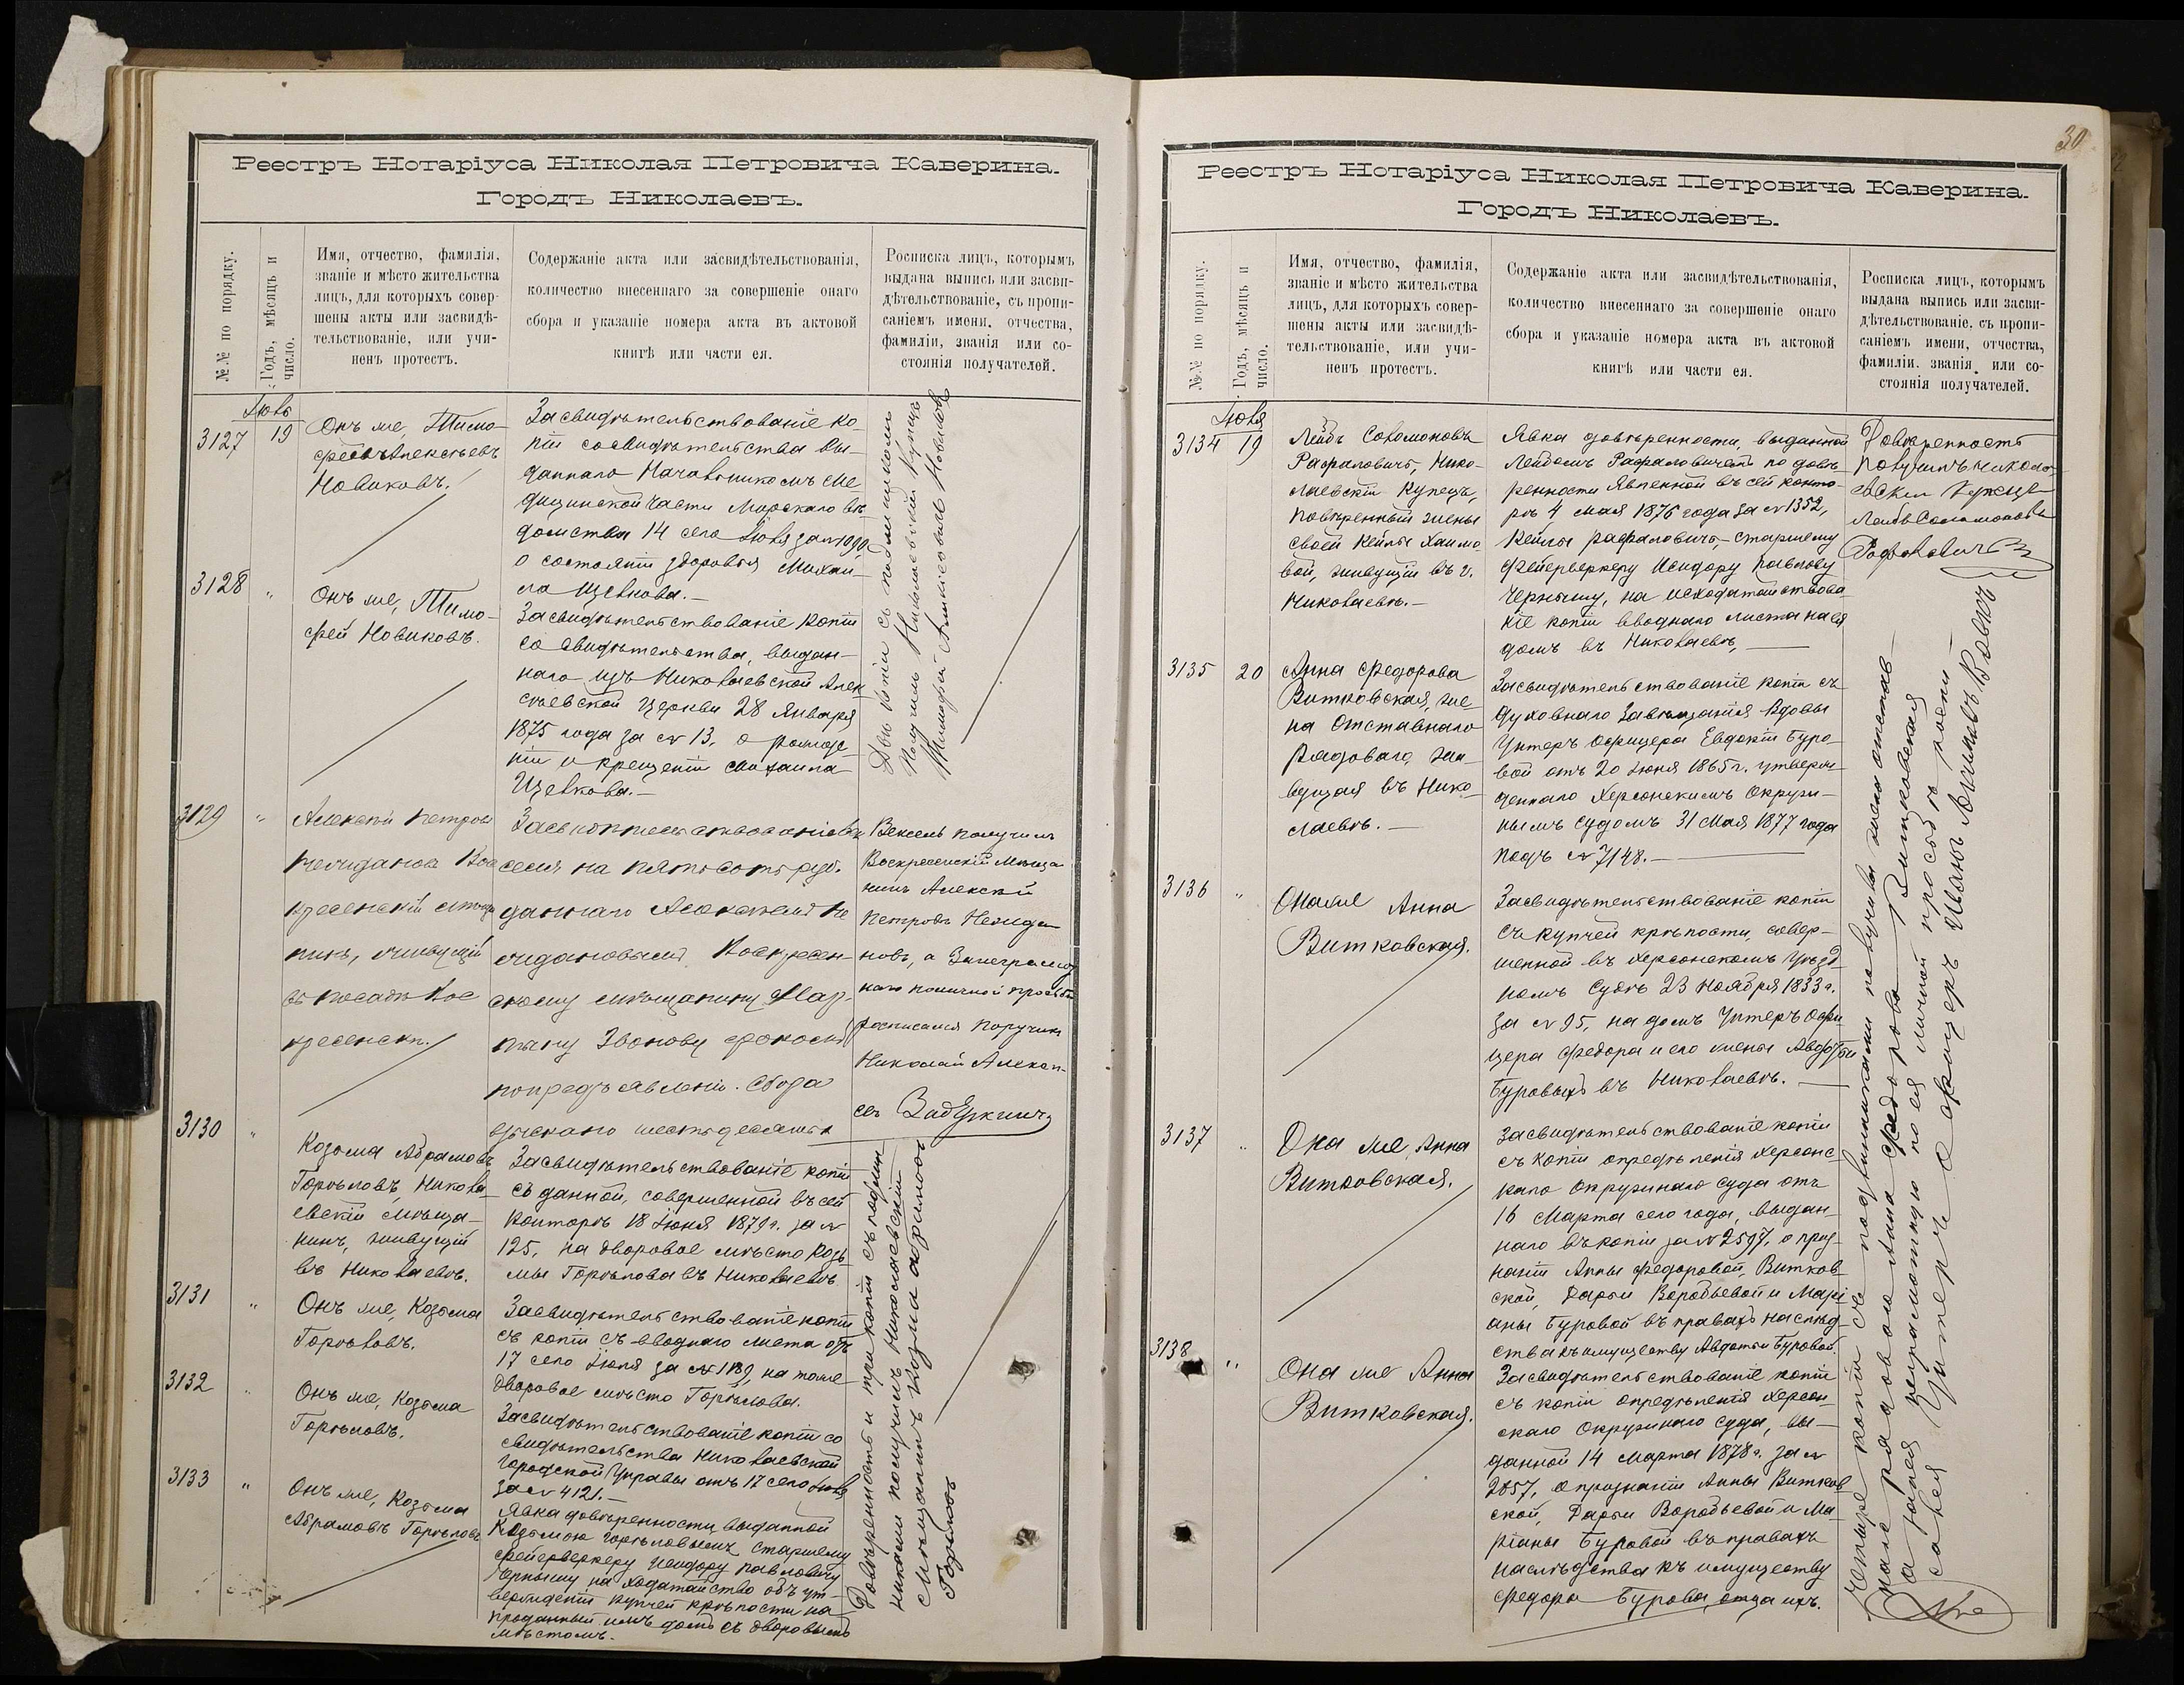 Реестръ Нотаріуса Николая Петровича Каверина.
Городъ Николаевъ.
№№ по порядку.
Годъ, мѣсяцъ и
число.
Имя, отчество, фамилія,
званіе и мѣсто жительства
лицъ, для которыхъ совер-
шены акты или засвидѣ-
тельствованіе, или учи-
ненъ протестъ.
Содержаніе акта или засвидѣтельствованія,
количество внесеннаго за совершеніе онаго
сбора и указаніе номера акта въ актовой
книгѣ или части ея.
Росписка лицъ, которымъ
выдана выпись или засви-
дѣтельствованіе, съ пропи-
саніемъ имени. отчества,
фамиліи, званія или со-
стоянія получателей.
Іюнь
3127
19
Онъ же, Тимо-
фей Алексѣевъ
Новиковъ.
Засвидѣтельствованіе ко-
піи со свидѣтельства вы-
даннаго Начальникомъ Ме-
дицинской части Морскаго вѣ-
домства 14 сего Іюня за № 1090,
о состояніи здоровья Михаи-
ла Щевкова.—
3128
"
Онъ же, Тимо-
фей Новиковъ.
Засвидѣтельствованіе копіи
со свидѣтельства, выдан-
наго изъ Николаевской Алек
сѣевской церкви 28 Января
1875 года за № 13, о рожде-
ніи и крещеніи Михаила
Щевкова.—
Двѣ копіи съ подлинниками
получилъ Николаевскій Купецъ
Тимофей Алексѣевъ Новиковъ
3129
"
Алексѣй Петровъ
Нечидановъ Вос
кресенскій мѣща
нинъ, живущій
въ посадѣ Вос
кресенскѣ.
сселя на пятьсотъ руб.
даннаго Алексѣемъ Не
чидановымъ Воскресен-
скому мѣщанину Мар-
тыну Звонову срокомъ
по предъявленіи. Сбора
взыскано шестьдесятъ к
Вексель получилъ
Воскресенскій мѣща
нинъ Алексѣй
Петровъ Нечида
новъ, а за неграмот
наго по личной просьбѣ
росписался Поручикъ
Николай Алексѣ-
евъ
3130
"
Козьма Абрамовъ
Горѣловъ, Никола-
евскій мѣща-
нинъ, живущій
въ Николаевѣ.
Засвидѣтельствованіе копіи
съ данной, совершенной въ сей
Конторѣ 18 Іюня 1879 г. за №
125, на дворовое мѣсто Козь
мы Горѣлова въ Николаевѣ
3131
"
Онъ же, Козьма
Горѣловъ.
Засвидѣтельствованіе копіи
съ копіи съ вводнаго листа отъ
17 сего Іюня за № 1189, на тоже
дворовое мѣсто Горѣлова.
3132
"
Онъ же, Козьма
Горѣловъ.
Засвидѣтельствованіе копіи со
свидѣтельства Николаевской
Городской Управы отъ 17 сего Іюня
за № 4121.—
3133
"
Онъ же, Козьма
Абрамовъ Горѣловъ
Явка довѣренности, выданной
Козьмою Горѣловымъ старшему
фейерверкеру Исидору Павловичу
Чернышу на ходатайство объ ут-
вержденіи купчей крѣпости на
проданный имъ домъ съ дворовымъ
мѣстомъ.
Довѣренность и три копіи съ подлин-
никами получилъ Николаевскій
мѣщанинъ Козма Абрамовъ
Горѣловъ
30
Реестръ Нотаріуса Николая Петровича Каверина.
Городъ Николаевъ.
№№ по порядку.
Годъ, мѣсяцъ и
число.
Имя, отчество, фамилія,
званіе и мѣсто жительства
лицъ, для которыхъ совер-
шены акты или засвидѣ-
тельствованіе, или учи-
ненъ протестъ.
Содержаніе акта или засвидѣтельствованія,
количество внесеннаго за совершеніе онаго
сбора и указаніе номера акта въ актовой
книгѣ или части ея.
Росписка лицъ, которымъ
выдана выпись или засви-
дѣтельствованіе, съ пропи-
саніемъ имени, отчества,
фамиліи. званія, или со-
стоянія получателей.
Іюня
3134
19
Лейбъ Соломоновъ
Рафаловичъ, Нико-
лаевскій Купецъ,
повѣренный жены
своей Кейлы Хаимо
вой, живущій въ г.
Николаевѣ.—
Явка довѣренности, выданной
Лейбомъ Рафаловичемъ по довѣ-
ренности явленной въ сей конто-
рѣ 4 мая 1876 года за № 1352,
Кейлы Рафаловичъ, старшему
фейерверкеру Исидору Павлову
Чернышу, на исходатайствова-
ніе копіи вводнаго листа на ея
домъ въ Николаевѣ,—
Довѣренность
получилъ Никола-
евскій Купецъ
Лейбъ Соломоновъ
Рафаловичъ
3135
20
Анна Федорова
Витковская, же-
на отставнаго
рядоваго, жи-
вущая въ Нико-
лаевѣ.—
Засвидѣтельствованіе копіи съ
духовнаго завѣщанія вдовы
Унтеръ Офицера Евдокіи Буро-
вой отъ 20 Іюня 1865 г. утверж-
деннаго Херсонскимъ Окруж-
нымъ Судомъ 31 Мая 1877 года
подъ № 7148.—
3136
"
Она же Анна
Витковская.
Засвидѣтельствованіе копіи
съ купчей крѣпости, совер-
шенной въ Херсонскомъ Уѣзд-
номъ Судѣ 23 Ноября 1833 г.
за № 95, на домъ Унтеръ Офи
цера Федора и его жены Авдотьи
Буровыхъ въ Николаевѣ.—
3137
"
Она же, Анна
Витковская.
Засвидѣтельствованіе копіи
съ копіи опредѣленія Херсонс-
каго Окружнаго Суда отъ
16 Марта сего года, выдан-
наго въ копіи за № 2597, о приз-
наніи Анны Федоровой, Витков-
ской, Дарьи Воробьевой и Марі
аны Буровой въ правахъ наслѣд-
ства къ имуществу Авдотьи Буровой.
3138
"
Она же Анна
Витковская.
Засвидѣтельствованіе копіи
съ копіи опредѣленія Херсон-
скаго Окружнаго Суда, вы-
данной 14 Марта 1878 г. за №
2057, о признаніи Анны Витков
ской, Дарьи Воробьевой и Ма-
ріаны Буровой въ правахъ
наслѣдства къ имуществу
Федора Бурова, отца ихъ.
Четыре копіи съ подлинниками получила жена отстав-
наго рядоваго Анна Федорова Витковская
а за нея неграмотную по ея личной просьбѣ роспи-
сался Унтеръ Офицеръ Иванъ